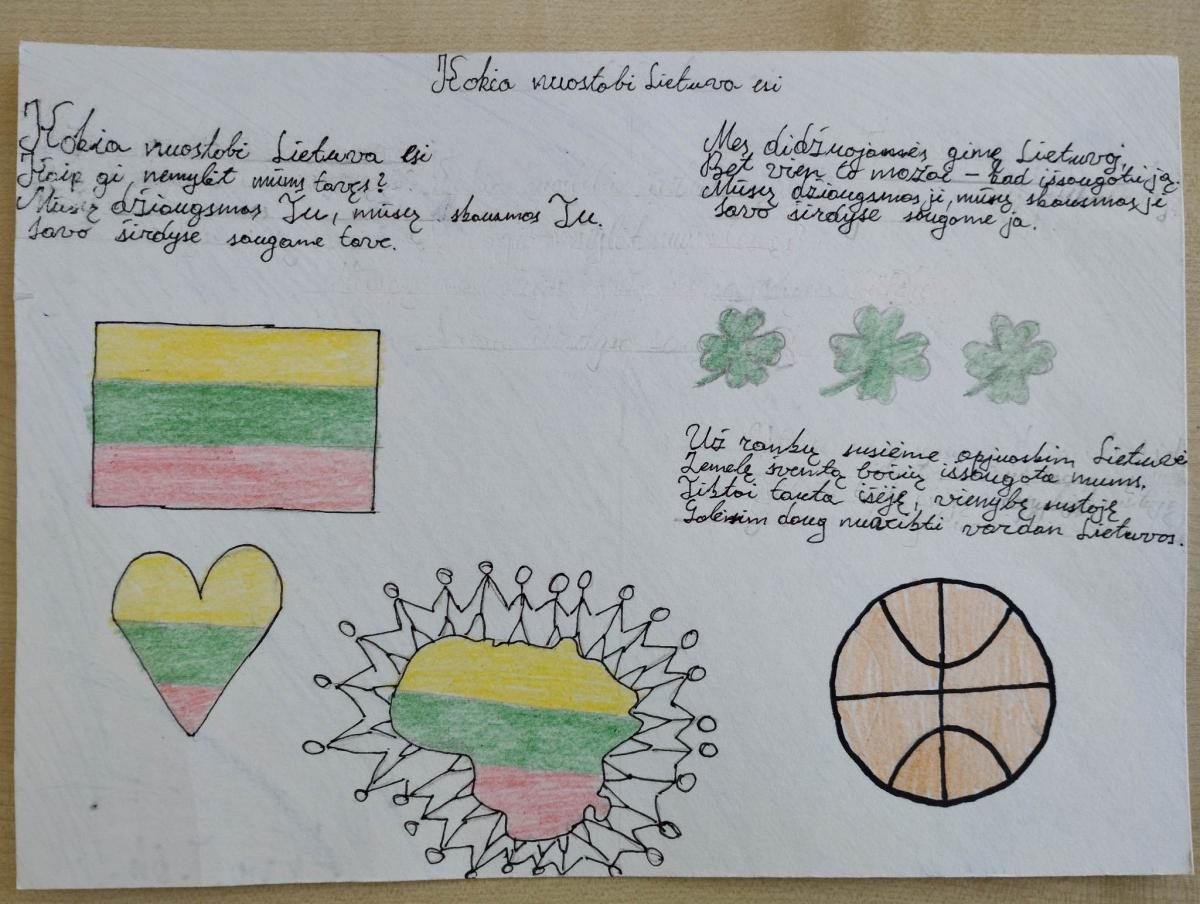 Kokia nuostabi Lietuva esi
Kokia nuostabi Lietuva esi
Kaip gi nemylėt mums tavęs?
Mūsų džiaugsmas Tu, mūsų skausmas Tu.
Savo širdyse saugame tave.
Mes didžiuojamės gimę Lietuvoj,
Bet vien to mažai – kad išsaugoti ją.
Mūsų džiaugsmas ji, mūsų skausmas ji
Savo širdyse saugome ją.
Už rankų susiėmę apjuoskim Lietuvą
Žemelę šventą bočių išsaugotą mums.
Tiktai tauta išėję, vienybę sustoję
Galėsim daug nuveikti vardan Lietuvos.